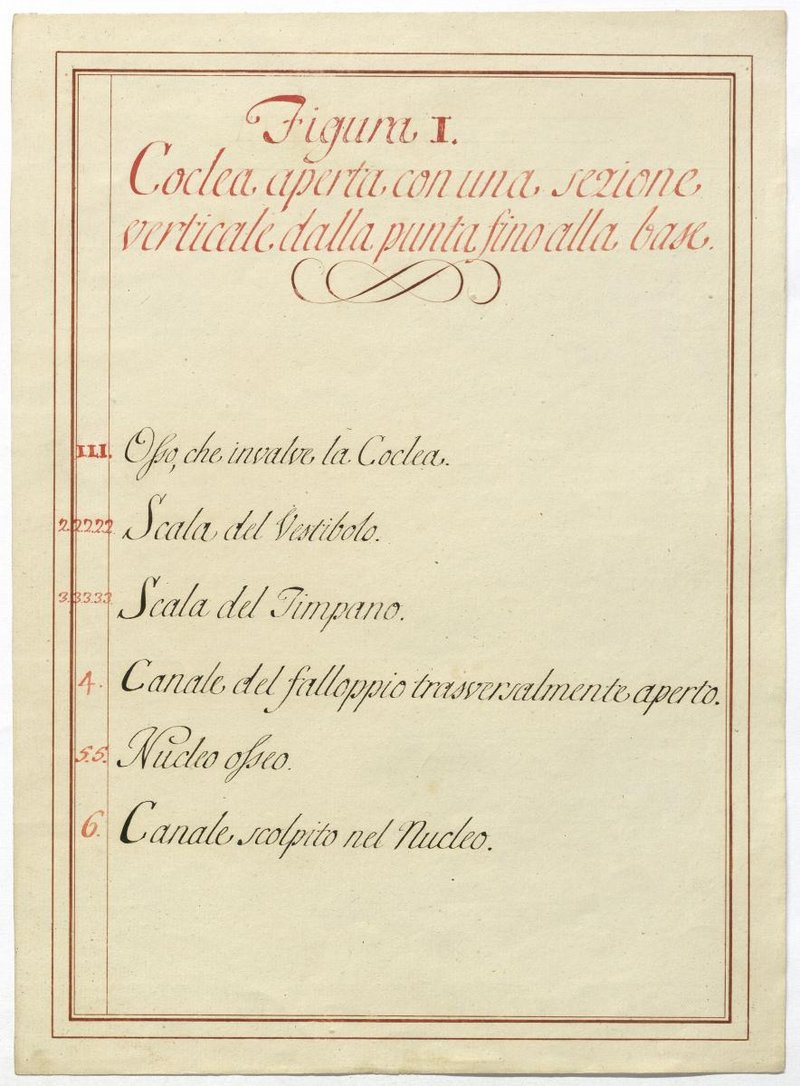 Figura I.
Coclea aperta con una sezione
verticale dalla punta fino alla base.
1.1.1. Osso, che involve la Coclea.
2.2.2.2.2. Scala del Vestibolo.
3.3.3.3.3. Scala del Timpano.
4. Canale del falloppio trasversalmente aperto.
5.5. Nucleo osseo.
6. Canale scolpito nel Nucleo.